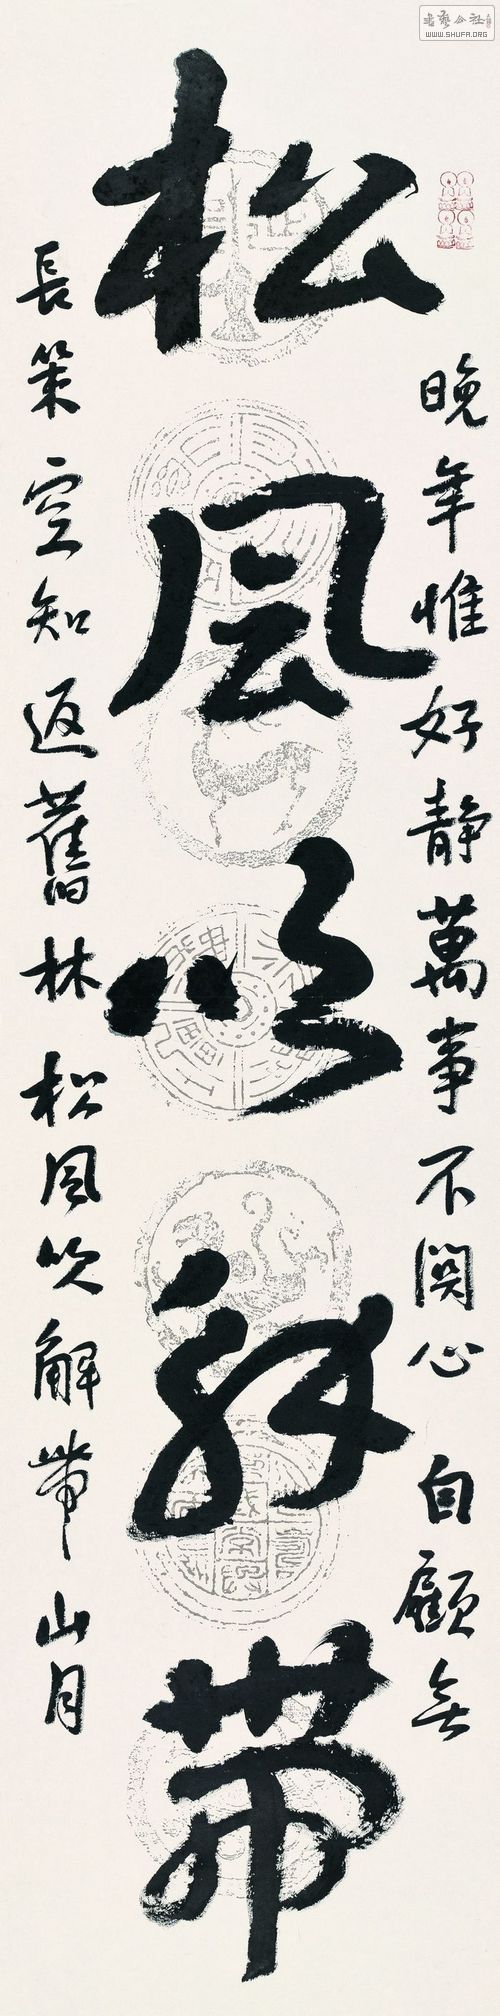 松風吹解帶
晚年惟好静萬事不關心 自顧無
長策空知返舊林 松風吹解帶山月
書藝公社
WWW.SHUFA.ORG